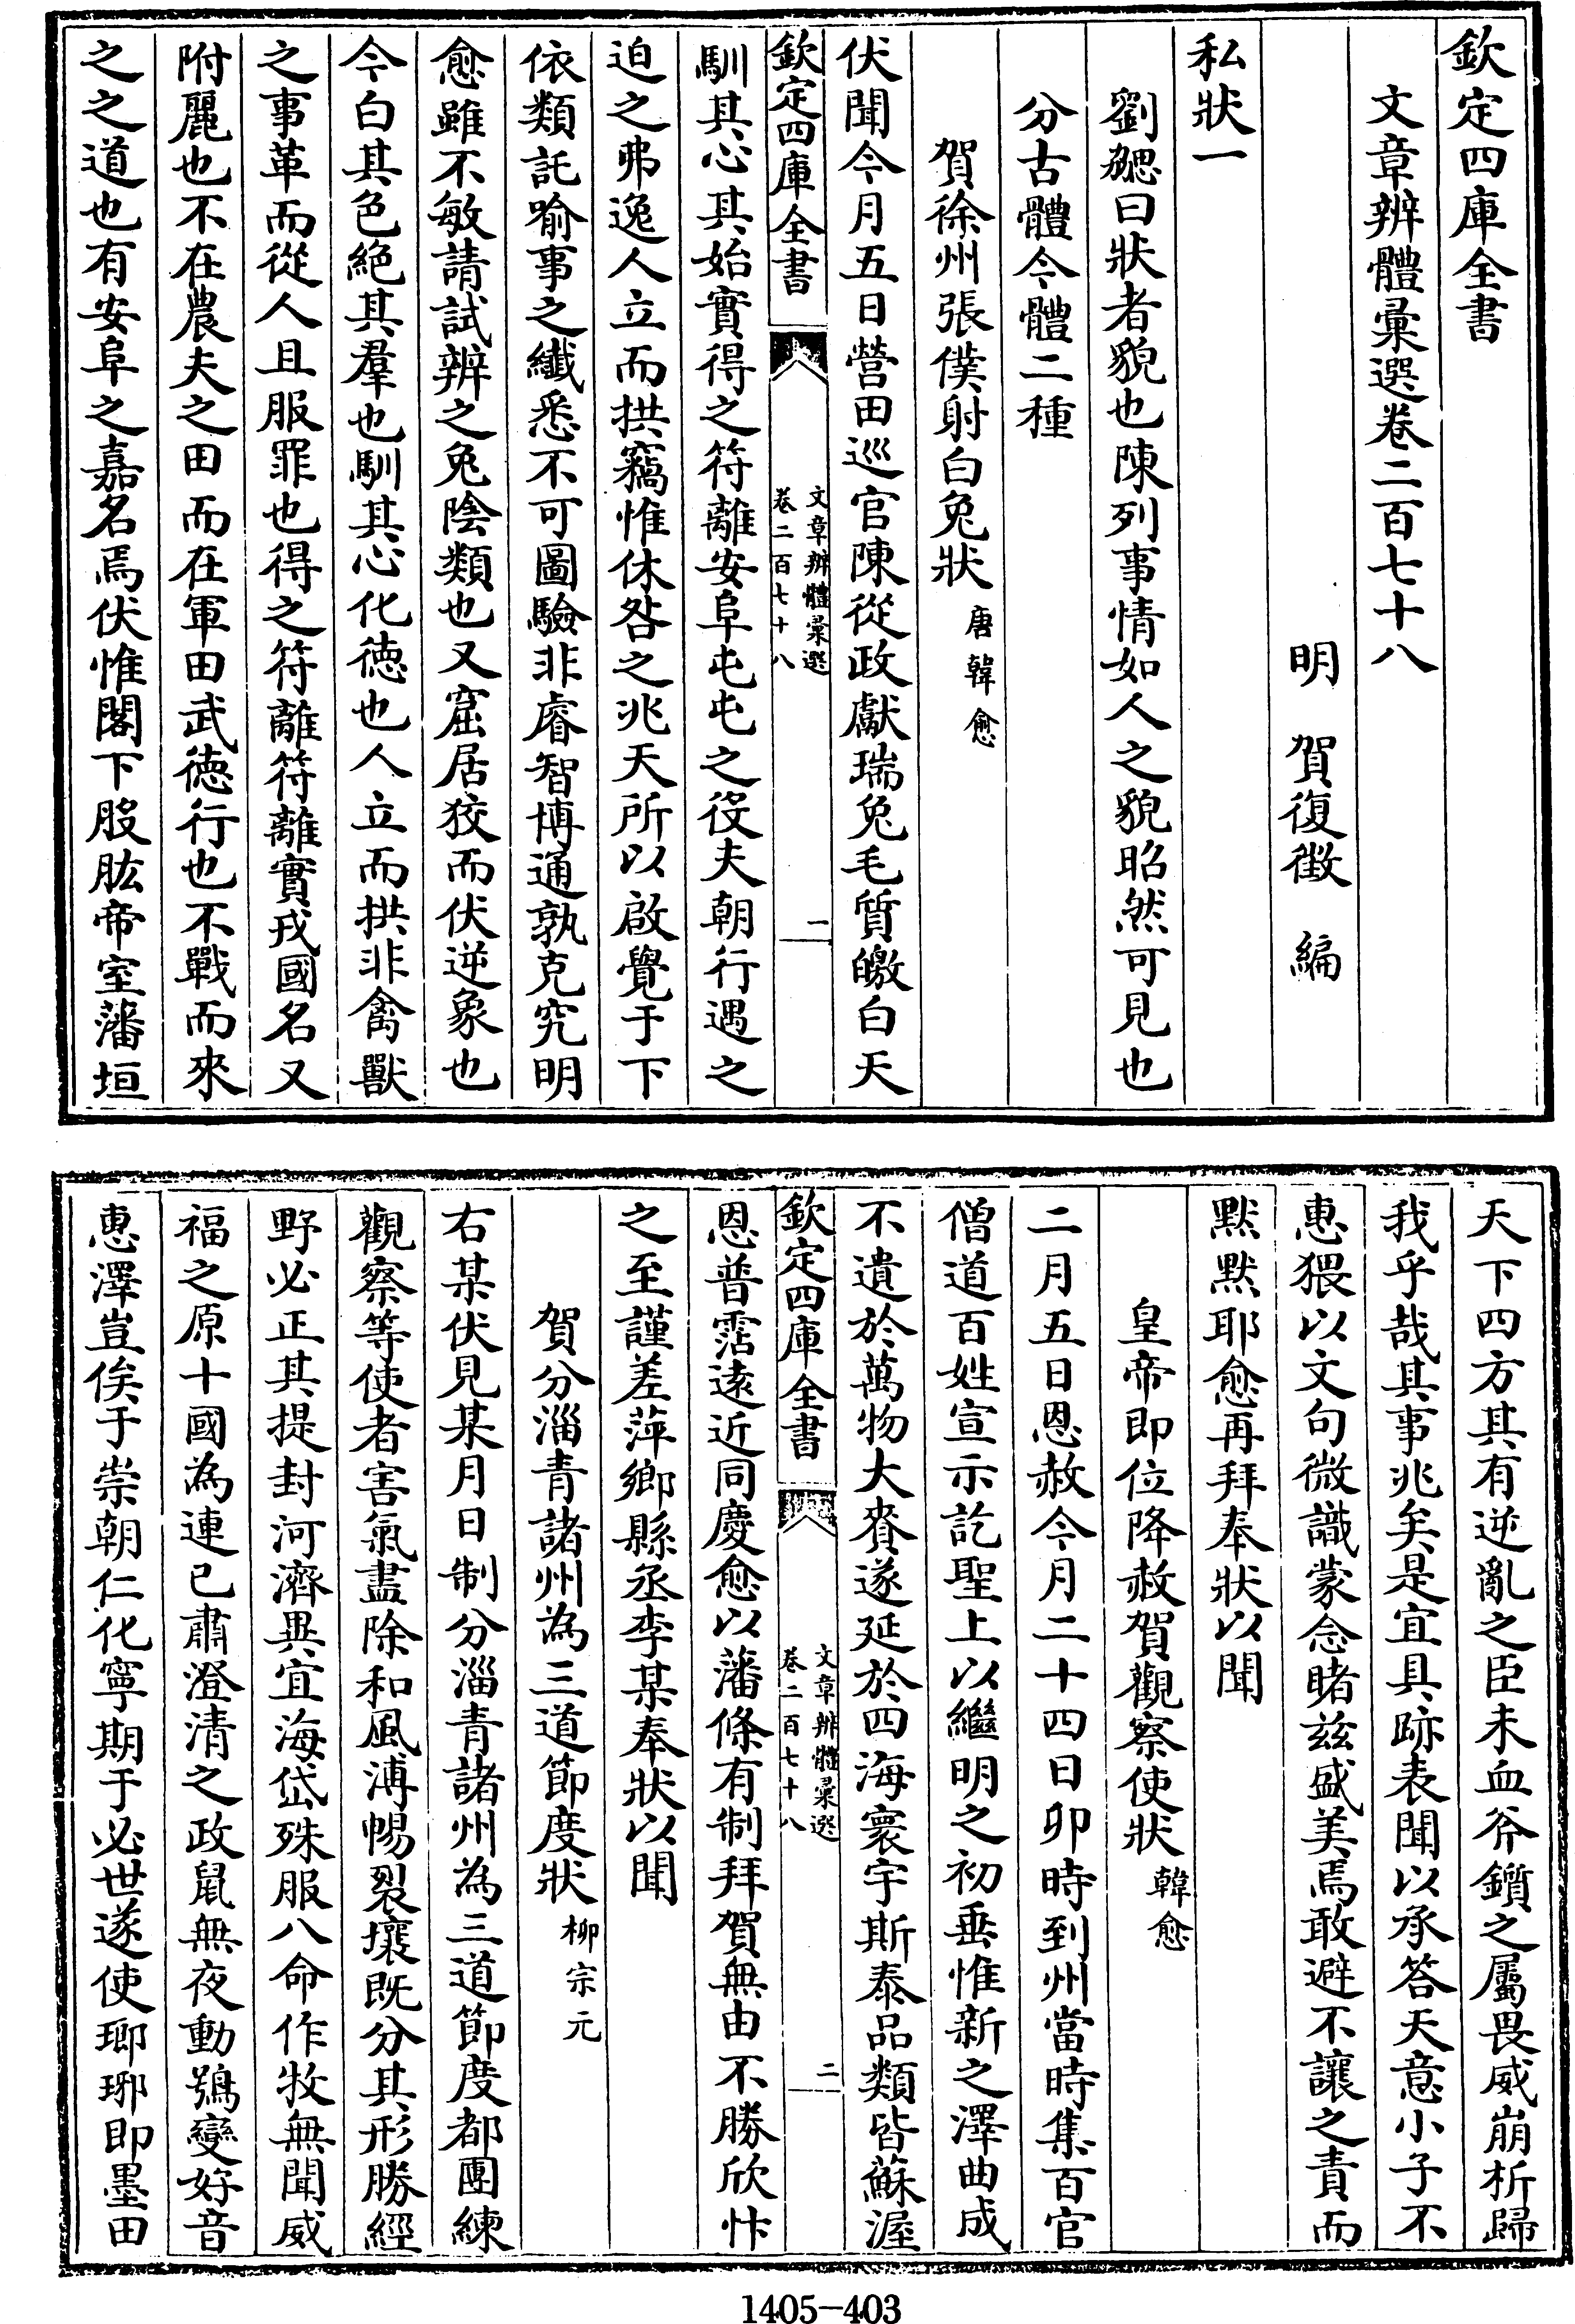 欽定四庫全書
文章辨體彙選卷二百七十八
明　賀復徵　編
私狀一
劉勰曰狀者貌也陳列事情如人之貌昭然可見也
分古體今體二種
賀徐州張僕射白兔狀　唐韓愈
伏聞今月五日營田巡官陳從政獻瑞兔毛質皦白天
欽定四庫全書　文章辨體彙選卷二百七十八　一
馴其心其始實得之符離安阜屯屯之役夫朝行遇之
迫之弗逸人立而拱竊惟休咎之兆天所以啟覺于下
依類託喻事之纖悉不可圖驗非睿智博通孰克究明
愈雖不敏請試辨之兔陰類也又窟居狡而伏逆象也
今白其色絕其羣也馴其心化德也人立而拱非禽獸
之事革而從人且服罪也得之符離符離實戎國名又
附麗也不在農夫之田而在軍田武德行也不戰而來
之之道也有安阜之嘉名焉伏惟閣下股肱帝室藩垣
天下四方其有逆亂之臣未血斧鑕之屬畏威崩析歸
我乎哉其事兆矣是宜具跡表聞以承答天意小子不
惠猥以文句微識蒙念睹兹盛美焉敢避不讓之責而
默默耶愈再拜奉狀以聞
皇帝即位降赦賀觀察使狀　韓愈
二月五日恩赦今月二十四日卯時到州當時集百官
僧道百姓宣示訖聖上以繼明之初垂惟新之澤曲成
不遺於萬物大賚遂延於四海寰宇斯泰品類皆蘇渥
欽定四庫全書　文章辨體彙選卷二百七十八　二
恩普霑遠近同慶愈以藩條有制拜賀無由不勝欣忭
之至謹差萍鄉縣丞李某奉狀以聞
賀分淄青諸州為三道節度狀　柳宗元
右某伏見某月日制分淄青諸州為三道節度都團練
觀察等使者害氣盡除和風溥暢裂壤既分其形勝經
野必正其提封河濟異宜海岱殊服八命作牧無聞威
福之原十國為連已肅澄清之政鼠無夜動鴞變好音
惠澤豈俟于崇朝仁化寧期于必世遂使瑯琊即墨田
1405-403